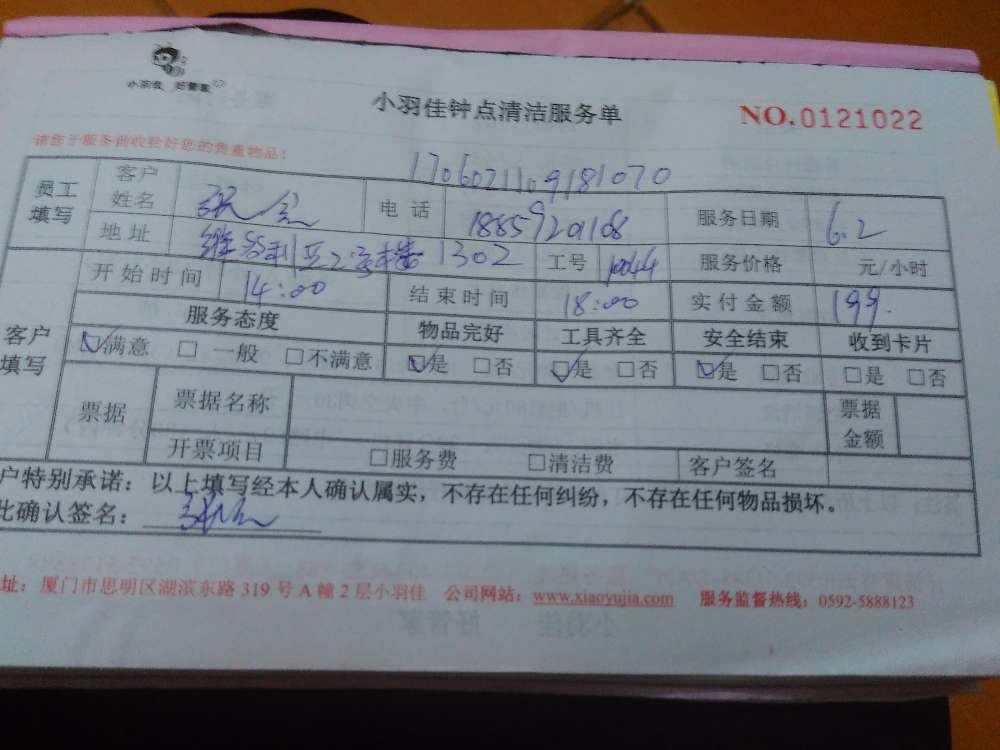 小羽佳 好管家
小羽佳钟点清洁服务单 NO.0121022
请您于服务前收验好您的贵重物品！
1706021109181070
员工填写 客户姓名 电话 18859201108 服务日期 6.2
地址 维多利亚2写楼1302 工号 1044 服务价格 元/小时
客户填写 开始时间 14:00 结束时间 18:00 实付金额 199.
服务态度 物品完好 工具齐全 安全结束 收到卡片
☑满意 □一般 □不满意 ☑是 □否 ☑是 □否 ☑是 □否 □是 □否
票据 票据名称 票据金额
开票项目 □服务费 □清洁费 客户签名
户特别承诺：以上填写经本人确认属实，不存在任何纠纷，不存在任何物品损坏。
此确认签名：
址：厦门市思明区湖滨东路319号A幢2层小羽佳 公司网站：www.xiaoyujia.com 服务监督热线：0592-5888123